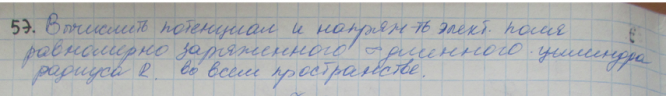 57. Вычислить потенциал и напряж-ть элект. поля
равномерно заряженного ∞ длинного цилиндра
радиуса R. во всем пространстве.